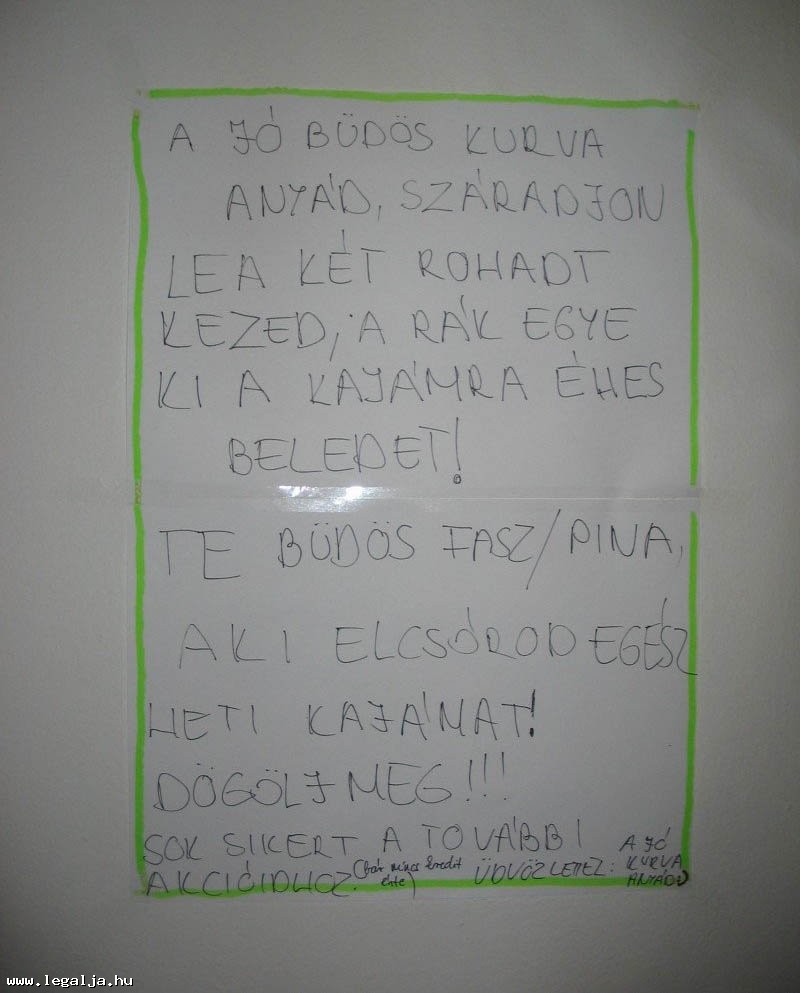 A JÓ BÜDÖS KURVA
ANYÁD, SZÁRADJON
LE A KÉT ROHADT
KEZED, A RÁK EGYE
KI A KAJÁMRA ÉHES
BELEDET!
TE BÜDÖS FASZ/PINA,
AKI ELCSÓROD EGÉSZ
HETI KAJÁMAT!
DÖGÖLJ MEG!!!
SOK SIKERT A TOVÁBBI
AKCIÓIDHOZ. (bár nincs kredit érte)
ÜDVÖZLETTEL: A JÓ
KURVA
ANYÁD
www.legalja.hu